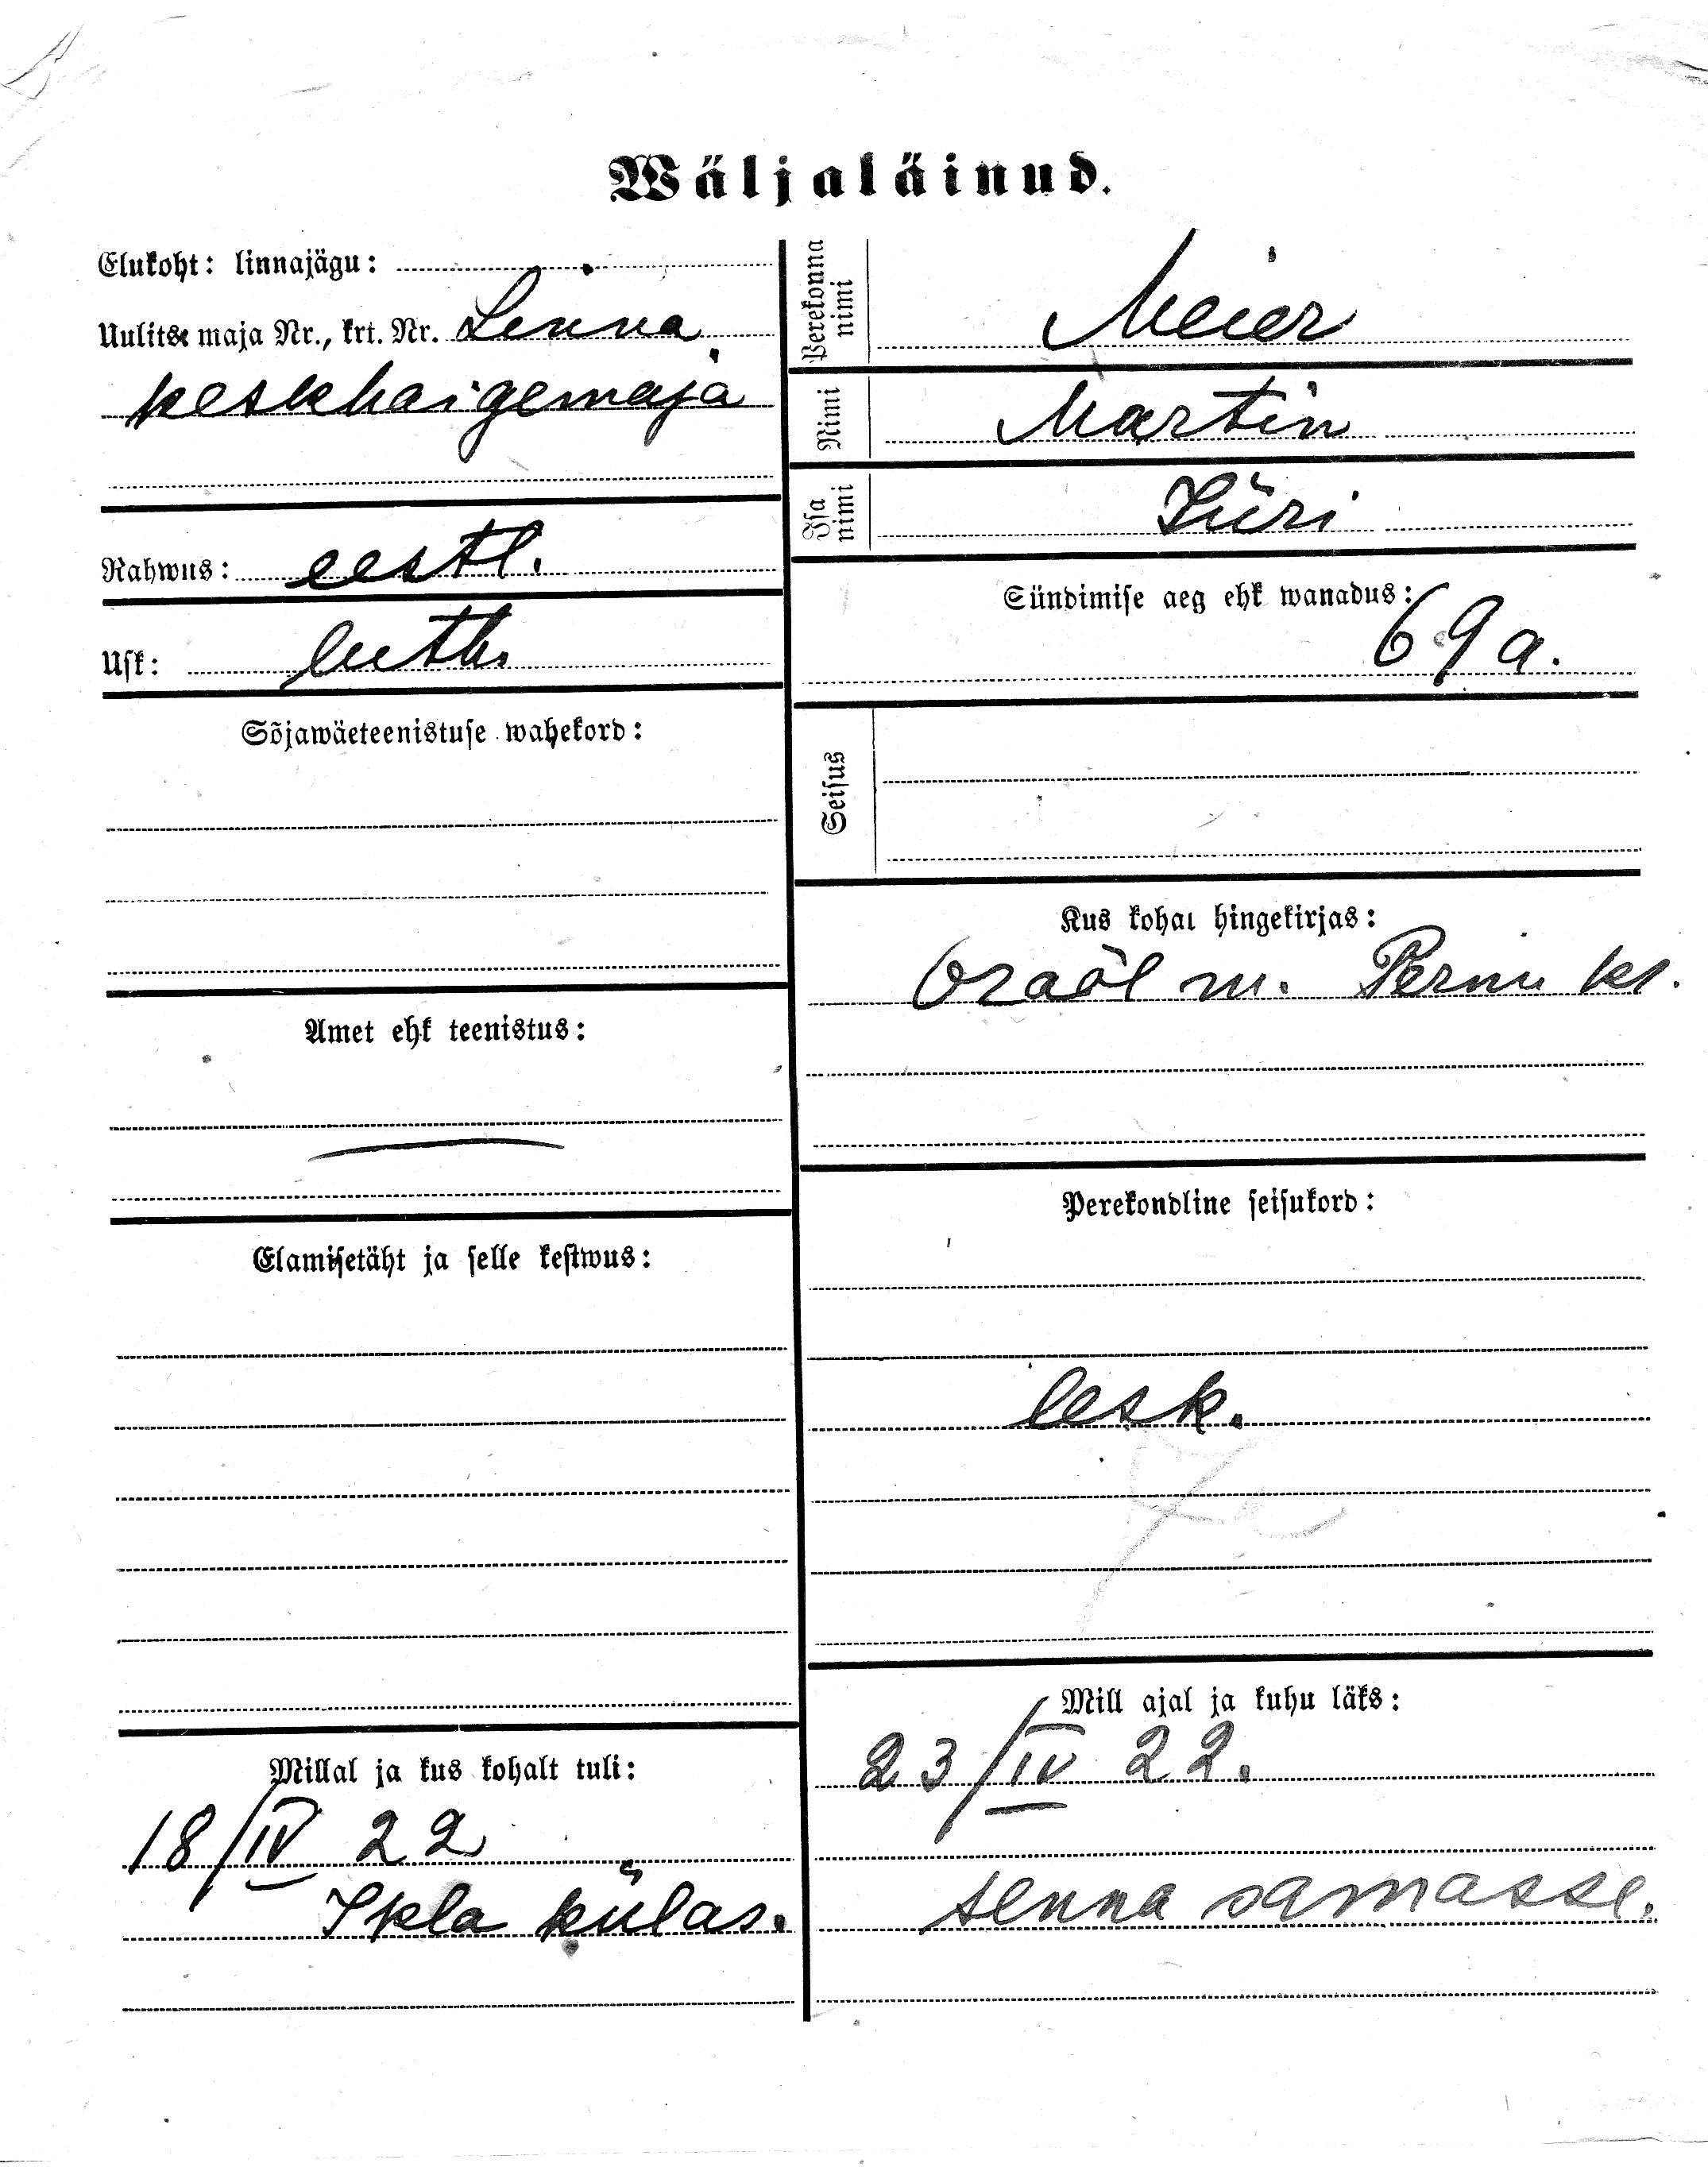 Wäljaläinud.
Elukoht: linnajägu:
Uulitse maja Nr., krt. Nr. Linna
keskhaigemaja
Rahwus: eestl.
Usk: luth
Sõjawäeteenistuse wahekord:
Amet ehk teenistus:
Elamisetäht ja selle kestwus:
Millal ja kus kohalt tuli:
18/IV 22
Ikla külas.
Perekonna nimi Meier
Nimi Martin
Isa nimi Jüri
Sündimise aeg ehk wanadus:
69 a.
Seisus
Kus kohal hingekirjas:
Oraõl m. Pernu kr.
Perekondline seisukord:
lesk.
Mill ajal ja kuhu läks:
23/IV 22.
senna samasse.